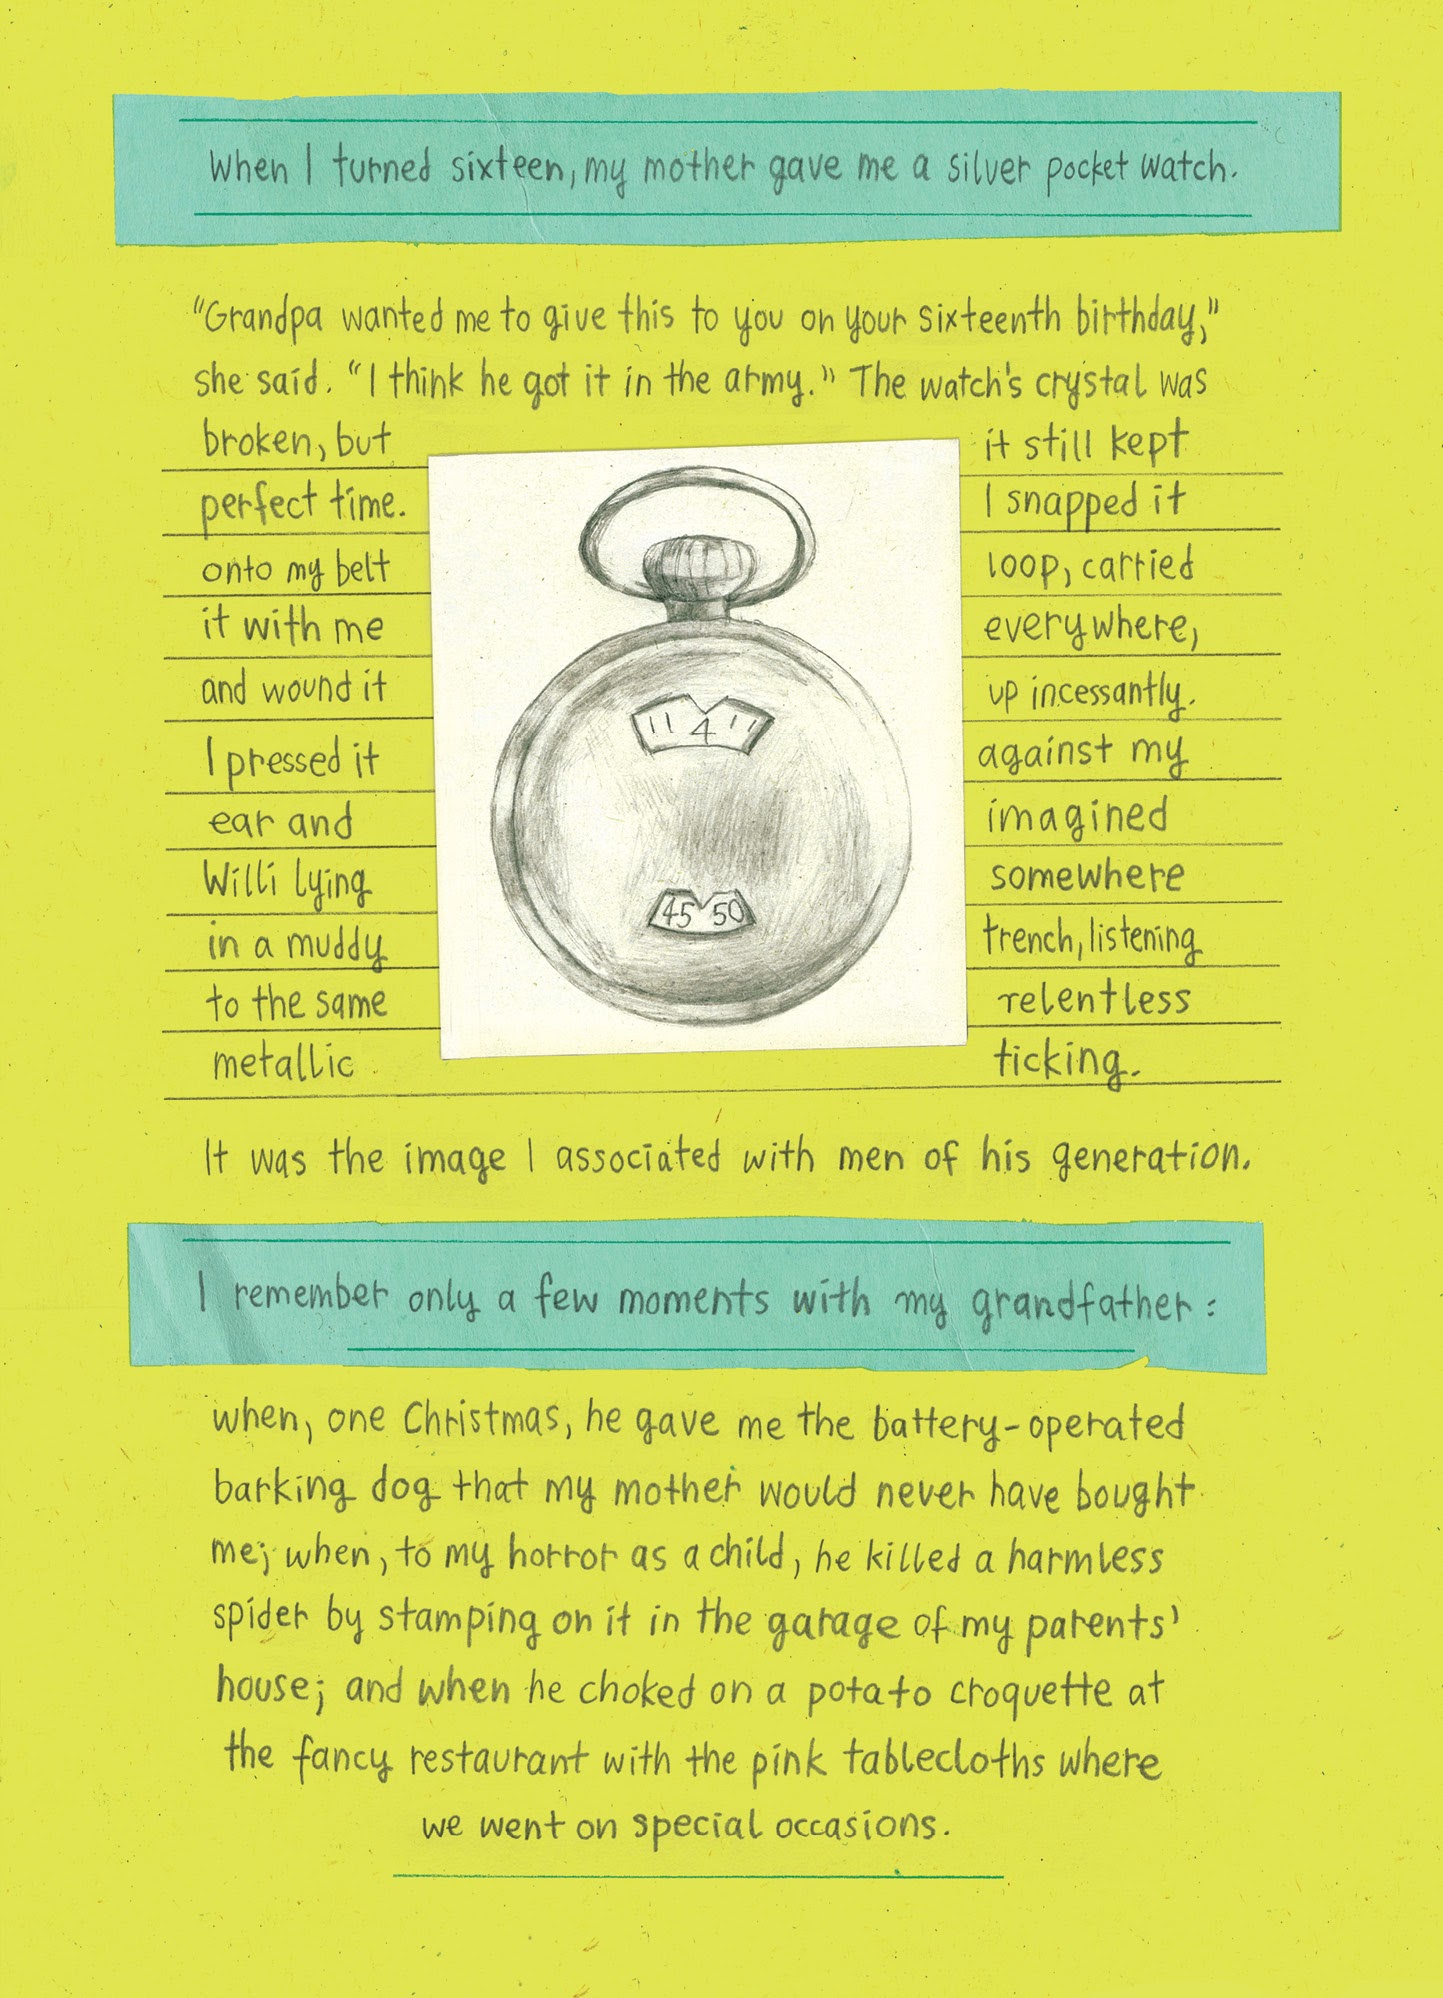 When I turned sixteen, my mother gave me a silver pocket watch.
"Grandpa wanted me to give this to you on your sixteenth birthday,"
she said. "I think he got it in the army." The watch's crystal was
broken, but it still kept
perfect time. I snapped it
onto my belt loop, carried
it with me everywhere,
and wound it up incessantly.
I pressed it against my
ear and imagined
Willi lying somewhere
in a muddy trench, listening
to the same relentless
metallic ticking.
11 4 11
45 50
It was the image I associated with men of his generation.
I remember only a few moments with my grandfather:
when, one Christmas, he gave me the battery-operated
barking dog that my mother would never have bought
me; when, to my horror as a child, he killed a harmless
spider by stamping on it in the garage of my parents'
house; and when he choked on a potato croquette at
the fancy restaurant with the pink tablecloths where
we went on special occasions.